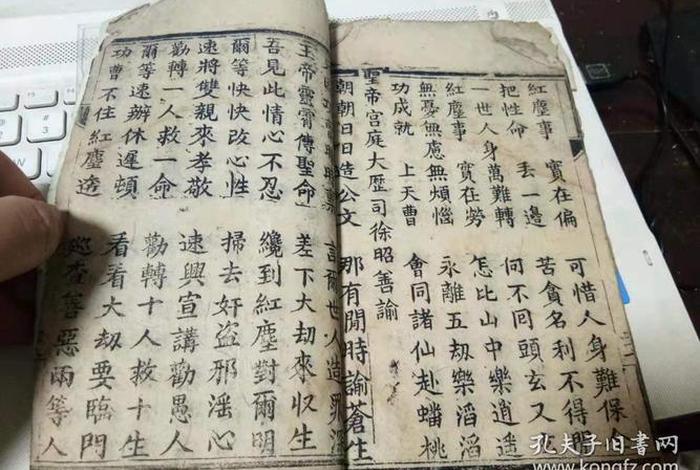 紅塵事 實在偏 可惜人身難保
把性命 丟一邊 苦貪名利不得閒
一世人身萬難轉 何不回頭玄又
紅塵事 實在勞 怎比山中樂逍遙
無憂無慮無煩惱 永離五劫樂滔滔
功成就 上天曹 會同諸仙赴蟠桃
聖帝宮庭大歷司徐昭善諭
朝朝日日造公文 那有閒時諭蒼生
爾世人造罪深
玉帝靈霄傳聖命 差下大劫來收生
吾見此情心不忍 纔到紅塵對爾明
爾等快快改心性 掃去奸盜邪淫心
速將雙親來孝敬 速興宣講勸愚人
勸轉一人救一命 勸轉十人救十生
爾等速辦休遲頓 看看大劫要臨門
功曹不住紅塵遶 巡查善惡兩等人
孔夫子旧书网
www.kongfz.com